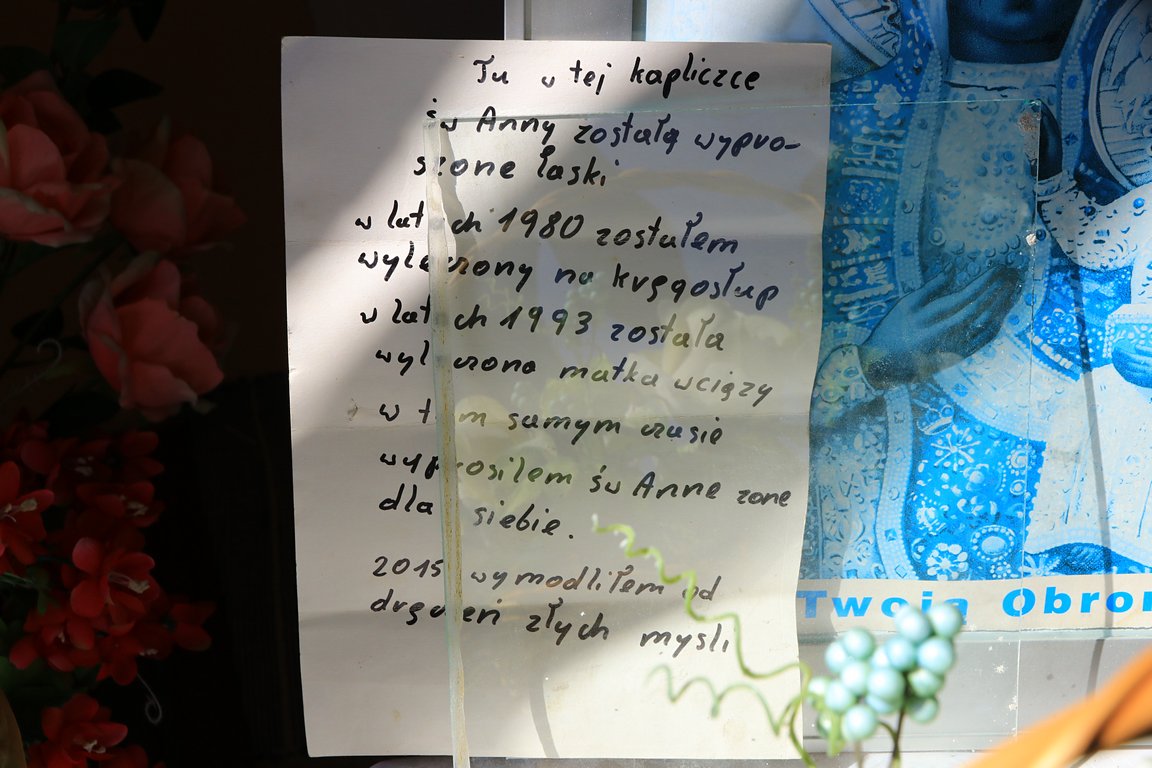 Tu w tej kapliczce
św Anny zostałą wypro-
szone łaski
w latach 1980 zostałem
wyleczony na kręgosłup
w latach 1993 została
wyleczona matka wciązy
w tem samym czasie
wyprosilem św Anne zone
dla siebie.
2015 wymodliłem od
dręczeń złych mysli
Twoja Obron